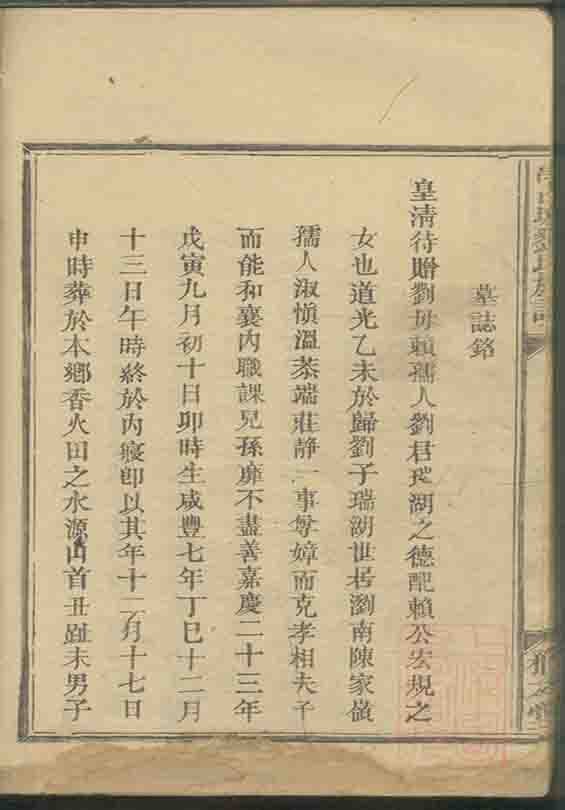 劉氏族譜
墓誌銘
皇清待贈劉母賴孺人劉君瑞湖之德配賴公宏規之
女也道光乙未於歸劉子瑞湖世居瀏南陳家嶺
孺人淑慎溫恭端莊静一事舅嫜而克孝相夫子
而能和襄內職課兒孫靡不盡善嘉慶二十三年
戊寅九月初十日卯時生咸豐七年丁巳十二月
十三日午時終於內寢卽以其年十二月十七日
申時葬於本鄉香火田之水源山首丑趾未男子